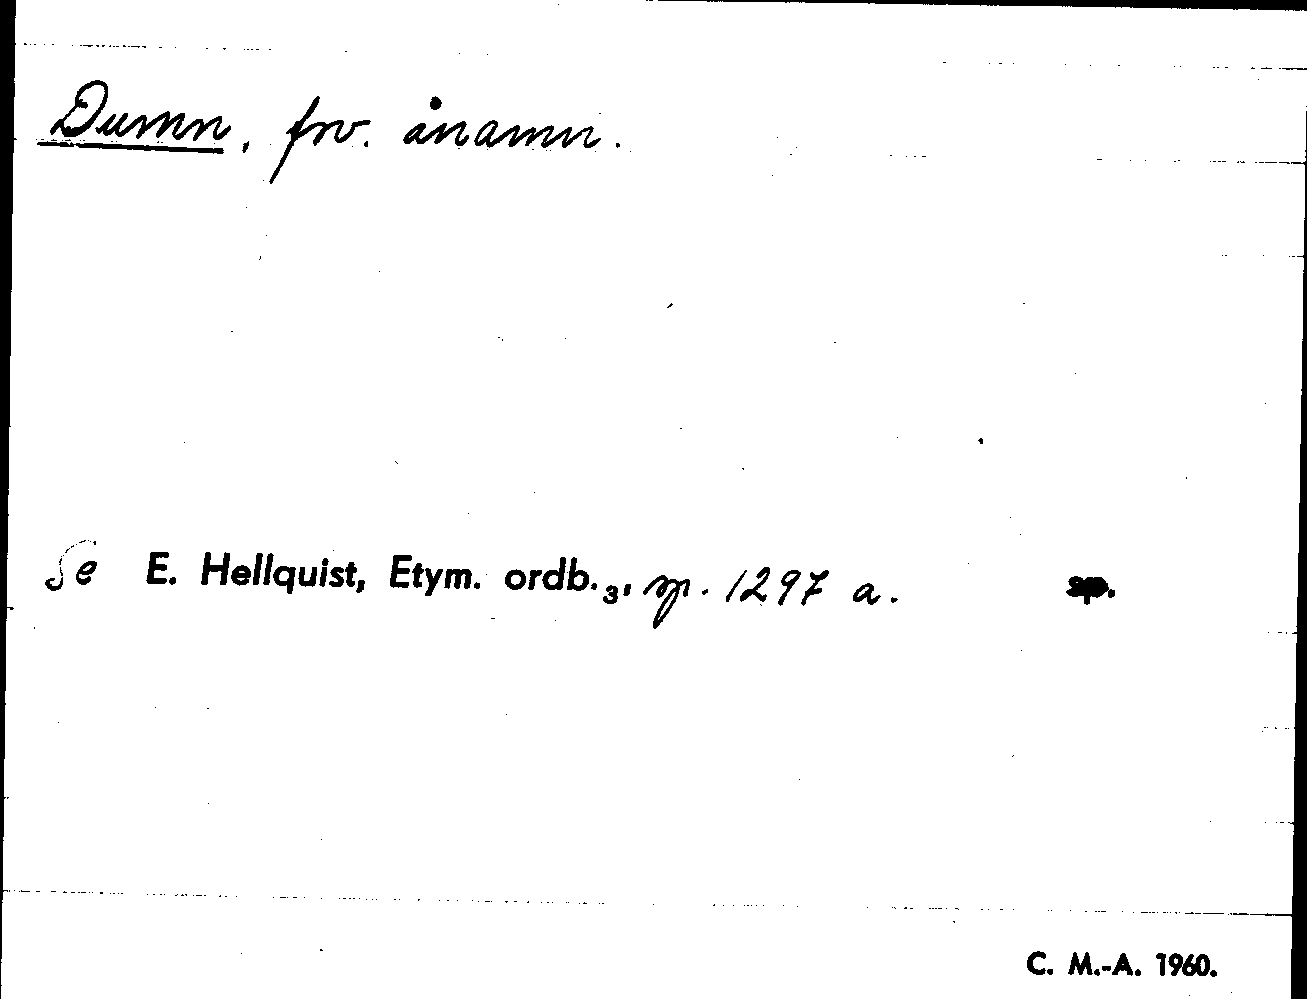 Dumn, fnv. ånamn.
Se E. Hellquist, Etym. ordb.₃, sp. 1297 a. sp.
C. M.-A. 1960.